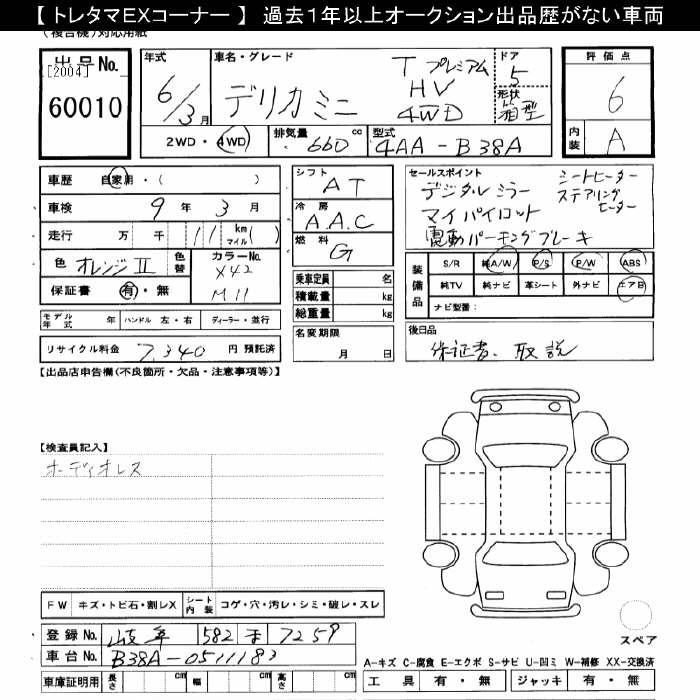 【 トレタマEXコーナー 】 過去１年以上オークション出品歴がない車両
(複合機)対応用紙
出品No.
[2004]
60010
年式
6/3月
車名・グレード
デリカミニ
T プレミアム
HV
4WD
ドア
5
形状
箱型
評価点
6
内装
A
2WD・4WD
排気量 660 cc
型式 4AA-B38A
車歴 自家用・( )
車検 9年 3月
走行 万 千 11 km マイル ( )
色 オレンジⅡ 色替
カラーNo.
X42
M11
保証書 有・無
シフト AT
冷房 A.A.C
燃料 G
乗車定員 名
積載量 kg
総重量 kg
セールスポイント
デジタルミラー
シートヒーター
ステアリング
ヒーター
マイパイロット
電動パーキングブレーキ
装備品
S/R 純A/W P/S P/W ABS
純TV 純ナビ 革シート 外ナビ エアB
ナビ型番:
モデル年式 年 ハンドル 左・右 ディーラー・並行
名変期限
月 日
後日品
保証書、取説
リサイクル料金 7,340 円 預託済
【出品店申告欄(不良箇所・欠品・注意事項等)】
【検査員記入】
オーディオレス
FW キズ・トビ石・割レX シート内装 コゲ・穴・汚レ・シミ・破レ・スレ
スペア
登録No. 岐阜 582 7259
車台No. B38A-0511183
車庫証明用 長さ cm 幅 cm 高さ cm
A-キズ C-腐食 E-エクボ S-サビ U-凹ミ W-補修 XX-交換済
工具 有・無 ジャッキ 有・無